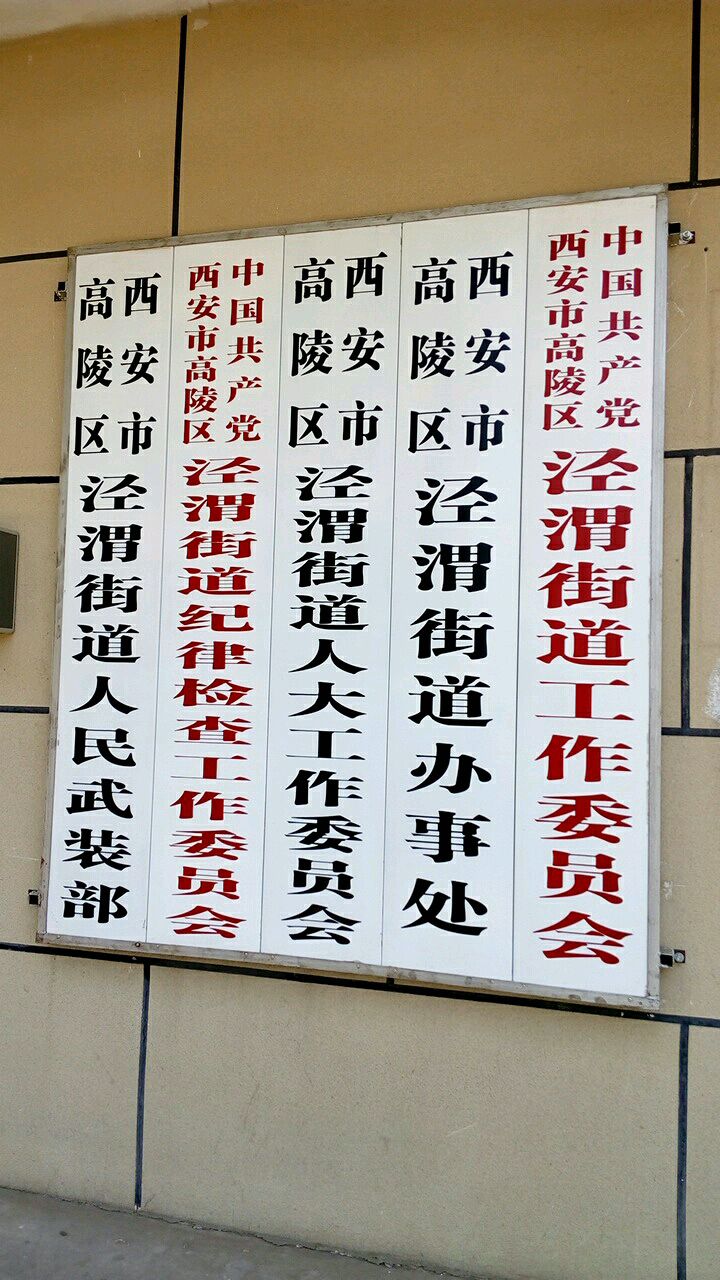 中国共产党
西安市高陵区
泾渭街道工作委员会
西安市
高陵区
泾渭街道办事处
西安市
高陵区
泾渭街道人大工作委员会
中国共产党
西安市高陵区
泾渭街道纪律检查工作委员会
西安市
高陵区
泾渭街道人民武装部